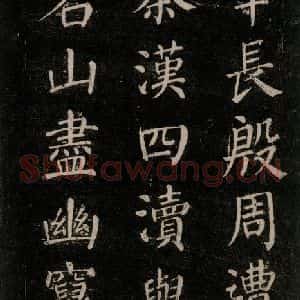 長殷周遭
秦漢四瀆與
名山盡幽
Shufawang.CN